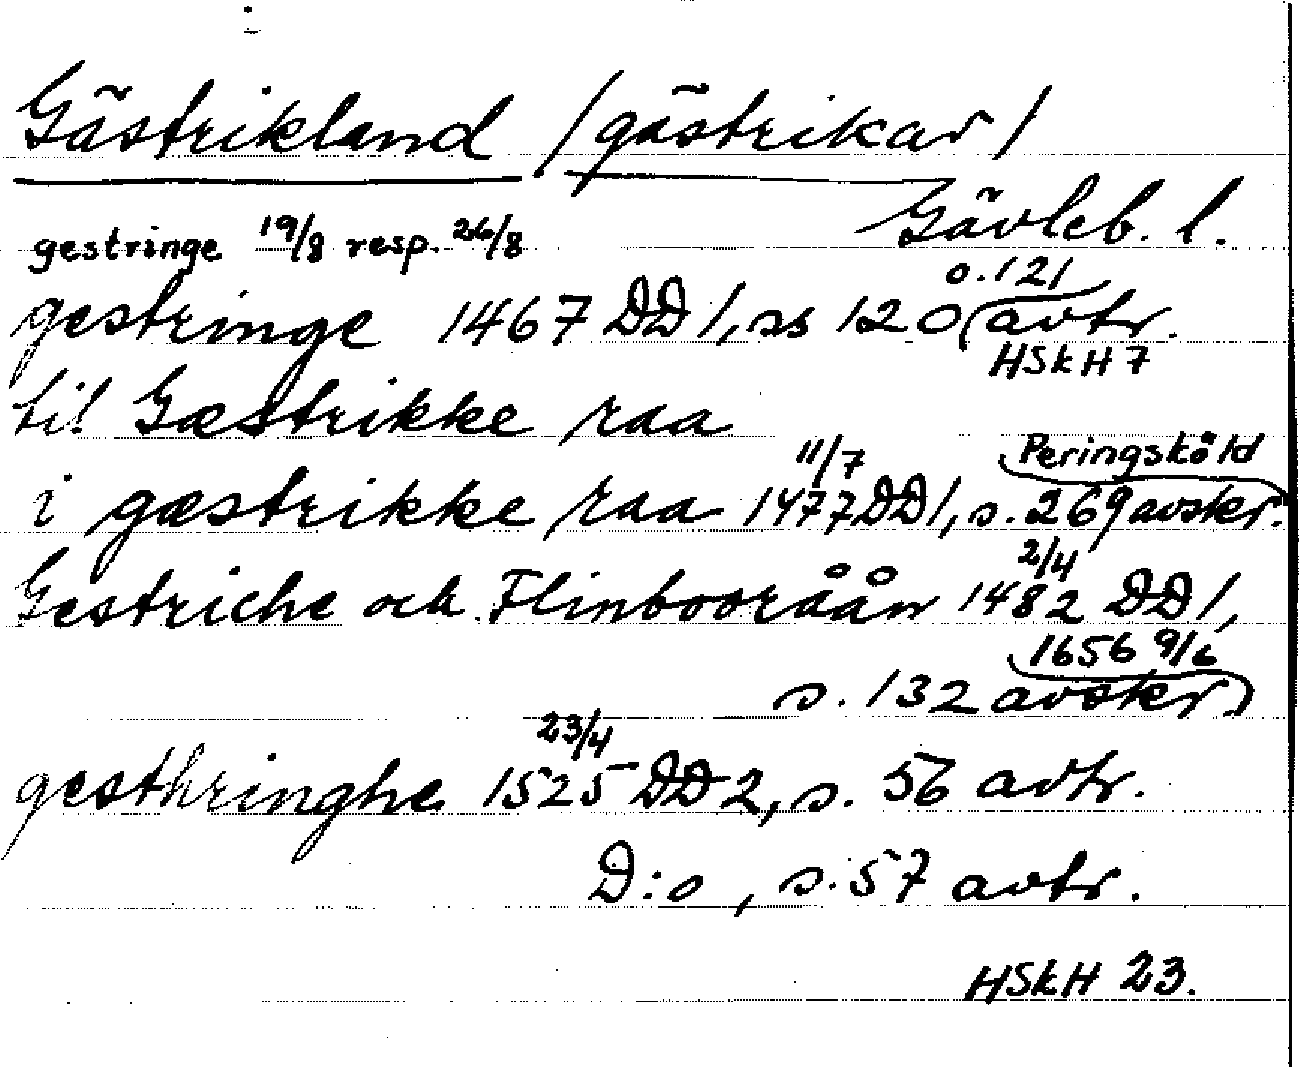 Gästrikland /gästrikar/
Gävleb. l.
gestringe 19/8 resp. 26/8
o. 121
gestringe 1467 DD 1, ss 120 (avtr.
HSkH 7
til Gæstrikke raa
11/7 Peringsköld
i gæstrikke raa 1477 DD 1, s. 269 avskr.
2/4
Gestriche och Flinbooråån 1482 DD 1,
1656 9/6
s. 132 avskr)
23/4
gesthringhe 1525 DD 2, s. 56 avtr.
D:o, s. 57 avtr.
HSkH 23.